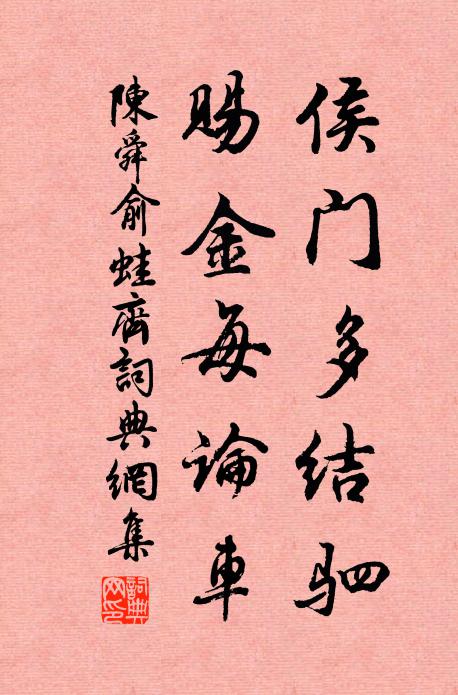 侯门多结驷
赐金每論車
陳舜俞蛙齋詞典網集
詞典網印